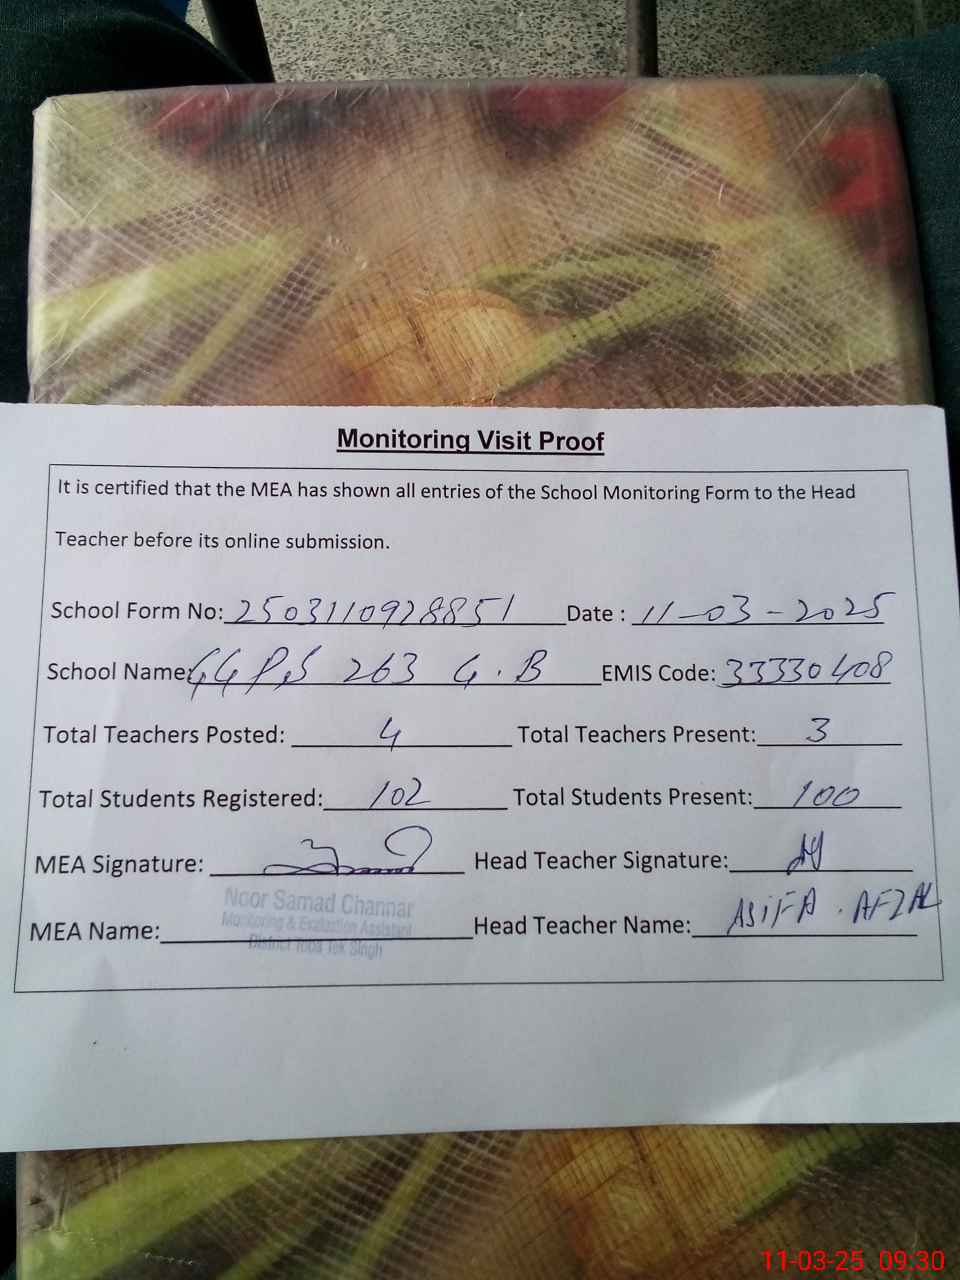 Monitoring Visit Proof
It is certified that the MEA has shown all entries of the School Monitoring Form to the Head
Teacher before its online submission.
School Form No: 2503110928851 Date : 11-03-2025
School Name: GGPS 263 G.B EMIS Code: 33330408
Total Teachers Posted: 4 Total Teachers Present: 3
Total Students Registered: 102 Total Students Present: 100
MEA Signature: Head Teacher Signature:
Noor Samad Channar
Monitoring & Evaluation Assistant
MEA Name: Head Teacher Name: ASIFA . AFZAL
District Toba Tek Singh
11-03-25 09:30